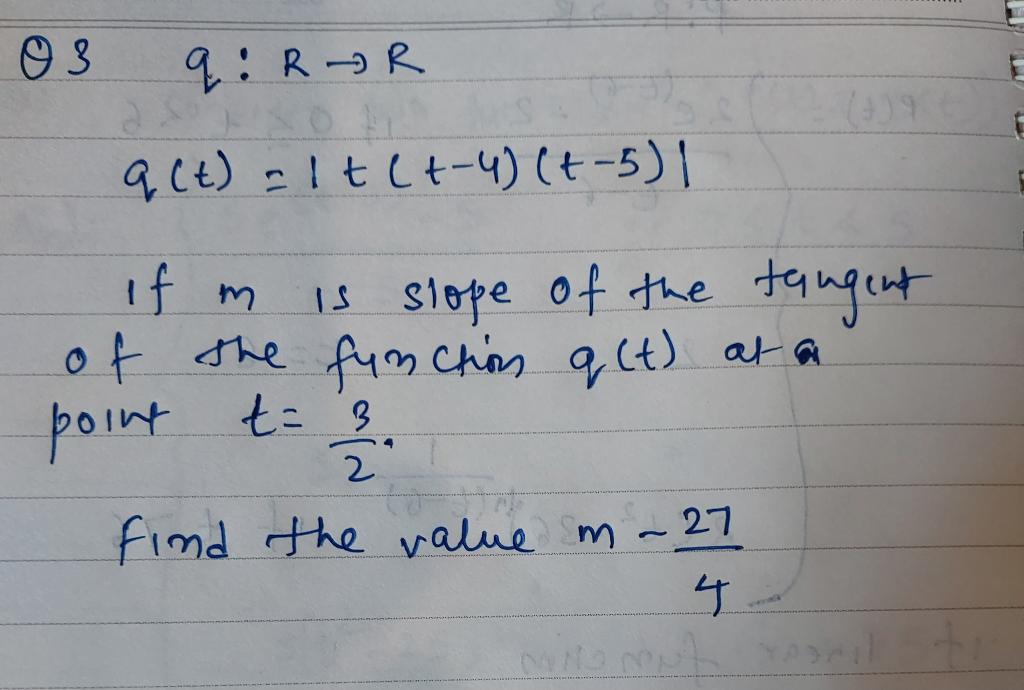 Q3 q : R → R
q(t) = | t (t-4) (t-5) |
If m is slope of the tangent
of the function q(t) at a
point t = 3/2.
Find the value m - 27/4